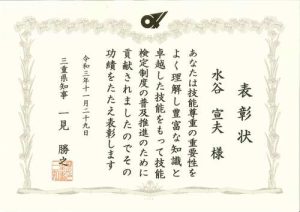 表彰状
水谷 宣夫 様
あなたは技能尊重の重要性を
よく理解し豊富な知識と
卓越した技能をもって技能
検定制度の普及推進のために
貢献されましたのでその
功績をたたえ表彰します
令和三年十一月二十九日
三重県知事 一見 勝之